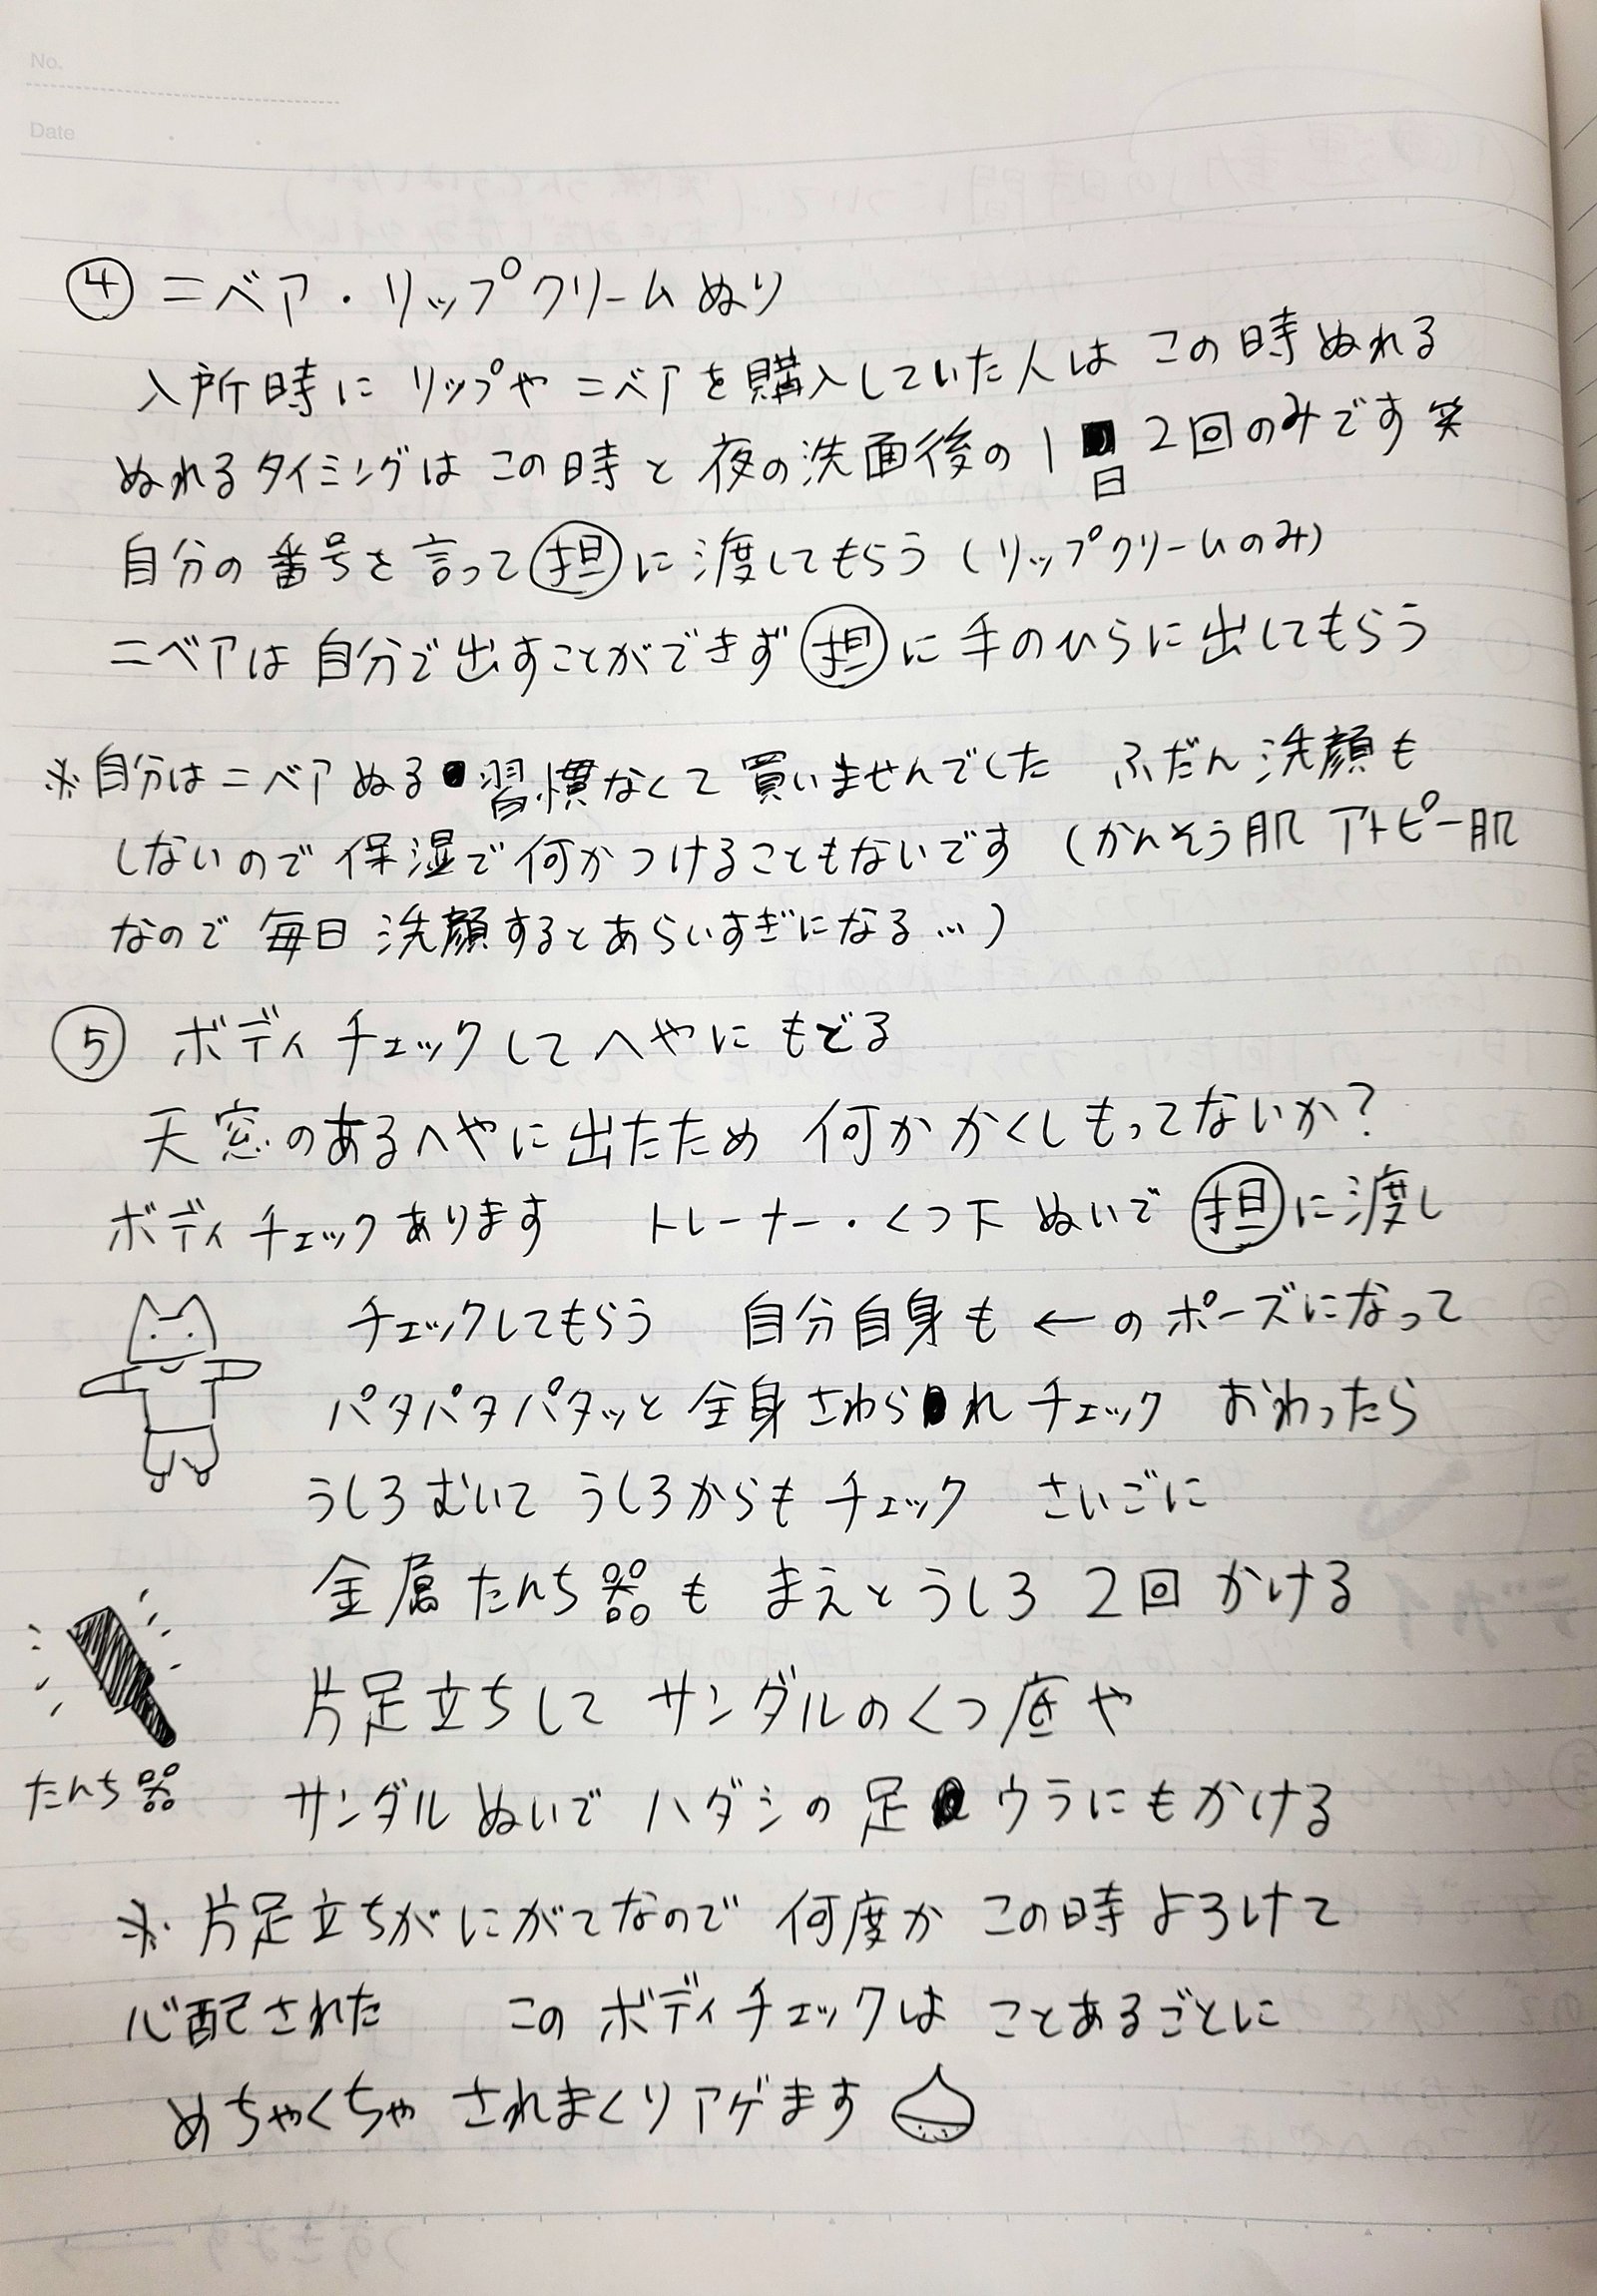 No.
Date
④ ニベア・リップクリームぬり
入所時に リップや ニベアを購入していた人は この時ぬれる
ぬれるタイミングは この時と 夜の洗面後の 1日 2回のみです 笑
自分の番号を言って 担 に渡してもらう (リップクリームのみ)
ニベアは自分で出すことができず 担 に手のひらに出してもらう
※自分はニベアぬる習慣なくて買いませんでした ふだん洗顔も
しないので保湿で何かつけることもないです (かんそう肌 アトピー肌
なので毎日 洗顔するとあらいすぎになる…)
⑤ ボディチェックしてへやにもどる
天窓のあるへやに出たため 何かかくしもってないか?
ボディチェックあります トレーナー・くつ下 ぬいで 担 に渡し
チェックしてもらう 自分自身も ←のポーズになって
パタパタパタッと全身さわられチェック おわったら
うしろむいて うしろからもチェック さいごに
金属たんち器も まえとうしろ 2回かける
片足立ちして サンダルのくつ底や
たんち器
サンダルぬいで ハダシの足ウラにもかける
※片足立ちがにがてなので 何度か この時よろけて
心配された このボディチェックは ことあるごとに
めちゃくちゃ されまくりアゲます